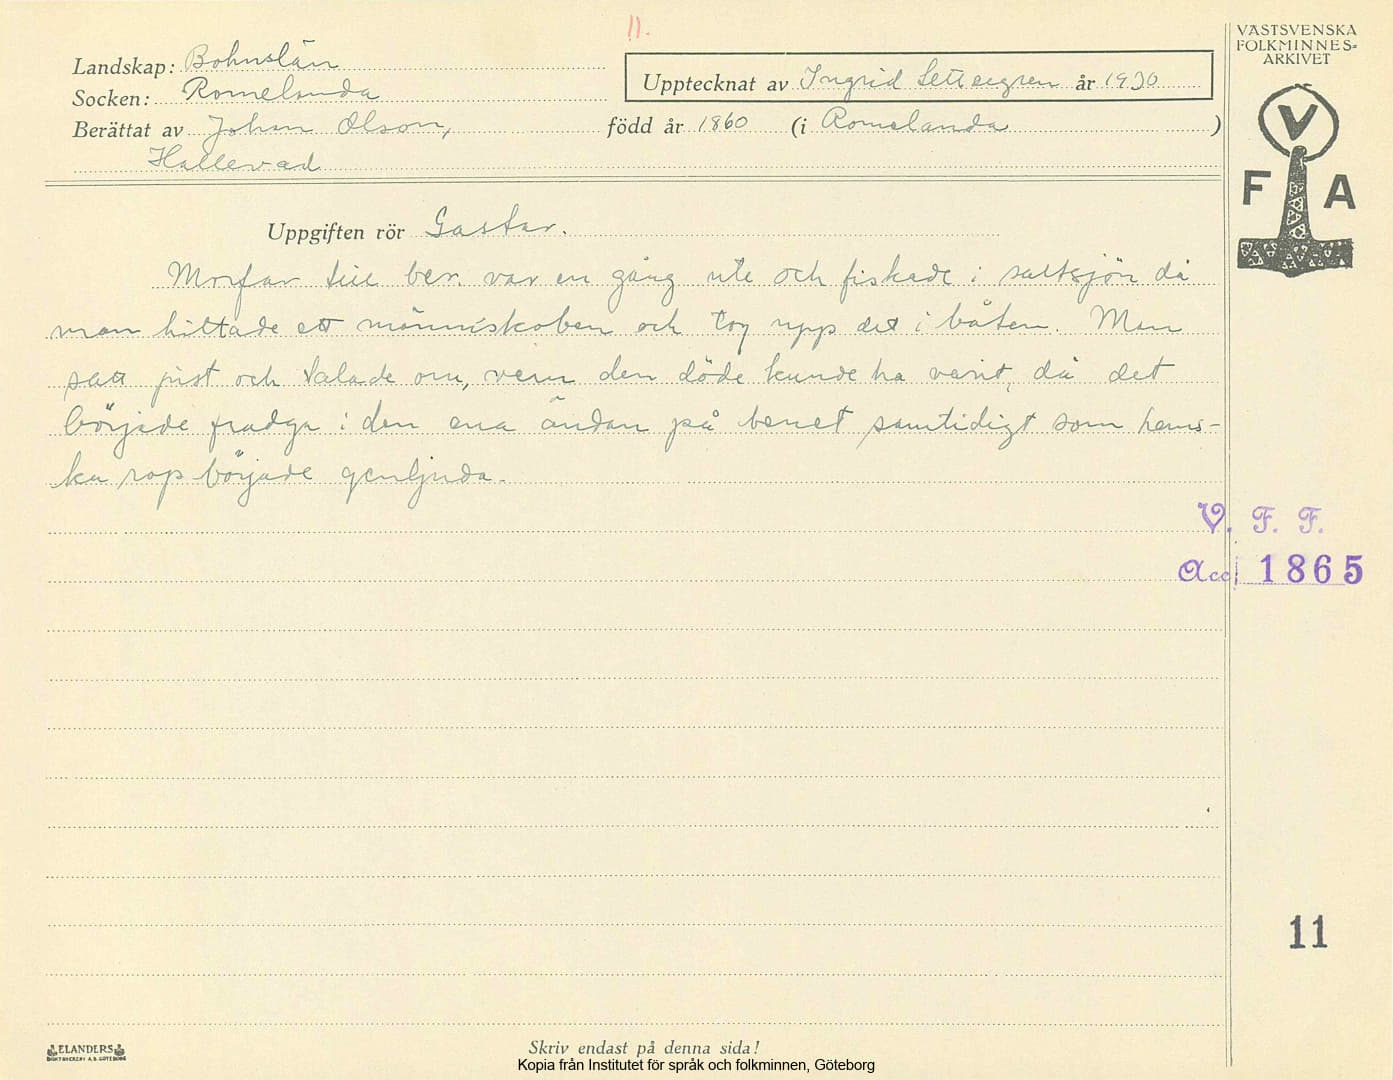 11.
VÄSTSVENSKA
FOLKMINNES-
ARKIVET
Landskap: Bohuslän
Socken: Romelanda
Upptecknat av Ingrid Settergren år 1930
Berättat av Johan Olson, född år 1860 (i Romelanda)
Hallevad
V
F A
Uppgiften rör Gastar.
Morfar till ber. var en gång ute och fiskade i saltsjön då
man hittade ett människoben och tog upp det i båten. Man
satt just och talade om, vem den döde kunde ha varit, då det
började fradga i den ena ändan på benet samtidigt som hems-
ka rop började genljuda.
V. F. F.
Acc. 1865
11
ELANDERS
BOKTRYCKERI A.B. GÖTEBORG
Skriv endast på denna sida!
Kopia från Institutet för språk och folkminnen, Göteborg